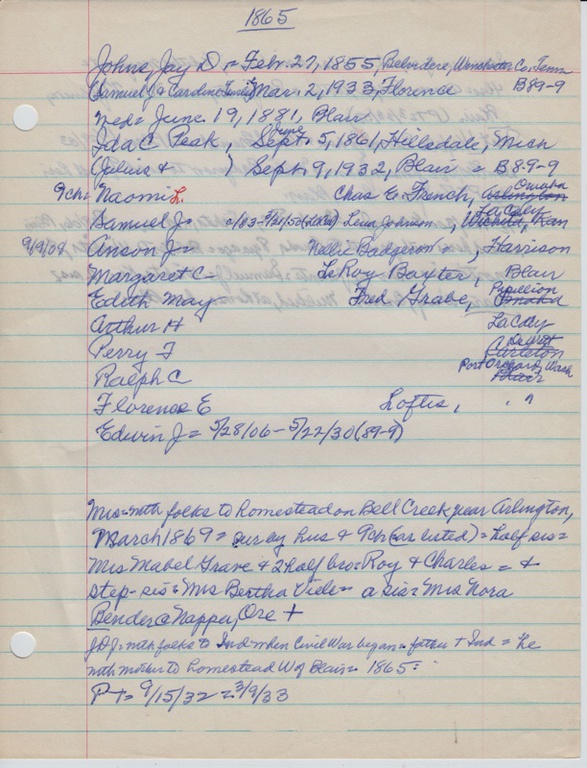 1865
Johns, Jay D = Feb. 27, 1855, Belvidere, Winchester Co. Tenn
Samuel J & Caroline Mar. 2, 1933, Florence B89-9
med= June 19, 1881, Blair
Ida C. Peak, Sept June 5, 1861, Hillsdale, Mich
Julius & } Sept. 9, 1932, Blair = B89-9
9ch= Naomi L. Chas E. French, Arlington Omaha
Samuel J= Lena Johnson, Wichita, Kan
9/9/09 Anson J= Nellie Badgerow =, Harrison
Margaret C = LeRoy Baxter, Blair
Edith May = Fred Grabe, Omaha Papillion
Arthur H LaCdy
Perry F Carleton
Ralph C Port Orchard, Wash Blair
Florence E Loftis, " "
Edwin J= 5/28/06 - 5/22/30 (89-9)
Mrs= with folks to homestead on Bell Creek near Arlington,
March 1869 = sur by hus & 9ch (as listed) = half sis=
Mrs Mabel Grave & 2 half bro= Roy & Charles = &
step-sis= Mrs Bertha Viele = a sis= Mrs Nora
Bender @ Nappa, Ore +
JDJ= with folks to Ind when Civil War began= father + Ind = he
with mother to homestead W of Blair= 1865=
P T= 9/15/32 = 3/9/33